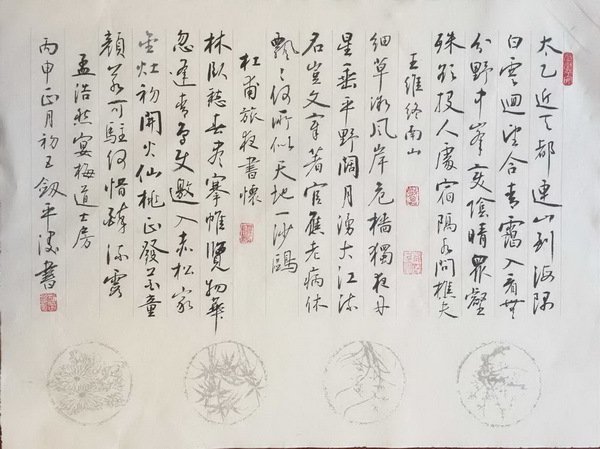 太乙近天都連山到海隅
白雲迴望合青靄入看無
分野中峯變陰晴眾壑
殊欲投人處宿隔水問樵夫
王維終南山
細草微風岸危檣獨夜舟
星垂平野闊月湧大江流
名豈文章著官應老病休
飄〻何所似天地一沙鷗
杜甫旅夜書懷
林臥愁春盡搴帷覽物華
忽逢青鳥使邀入赤松家
金灶初開火仙桃正發花童
顏若可駐何惜醉流霞
孟浩然宴梅道士房
丙申正月初五劔平書